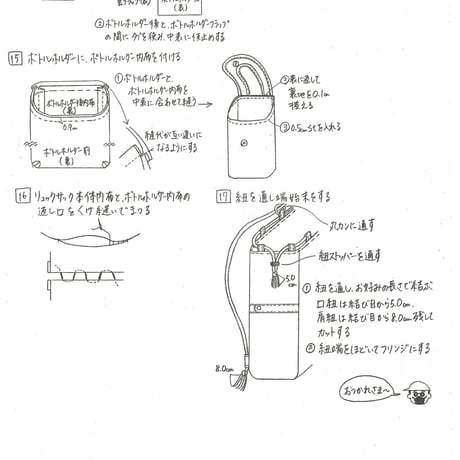 (表)
②ボトルホルダー後と、ボトルホルダーフラップ
の間にタグを挟み、中表に仮止めする
15 ボトルホルダーに、ボトルホルダー内布を付ける
①ボトルホルダーと、
ボトルホルダー内布を
中表に合わせて縫う
ボトルホルダー後内布
(裏)
0.9cm
縫代が互い違いに
なるようにする
ボトルホルダー前
(裏)
②表に返して
裏地を0.1cm
控える
③0.5cmSTを入れる
16 リュックサック本体内布と、ボトルホルダー内布の
返し口をくけ縫いでまつる
17 紐を通し端始末をする
丸カンに通す
紐ストッパーを通す
5.0
cm
①紐を通し、お好みの長さで結ぶ
口紐は結び目から5.0cm、
肩紐は結び目から8.0cm残して
カットする
②紐端をほどいてフリンジにする
8.0cm
おつかれさま〜